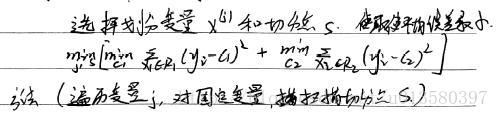 选择划分变量 x^(j) 和切分点 s. 使得平方误差最小.
min_{j,s}[min_{c1} Σ_{xi∈R1}(yi-c1)² + min_{c2} Σ_{xi∈R2}(yi-c2)²]
方法 (遍历变量j, 对固定变量j扫描切分点 s)